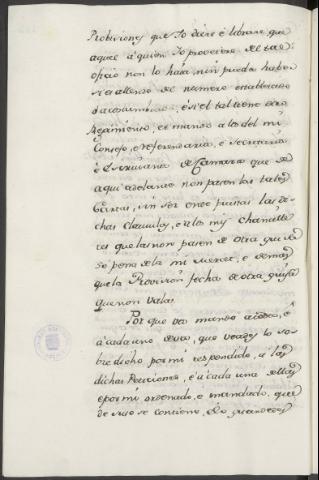 Probisiones que Yo diere é librare, que
aquel a quien Yo proveiere del tal
oficio non lo haia, nin pueda haber
si es allende del numero establecido
é acostumbrado, é si el tal tiene otro
Regimiento, é mando a los del mi
Consejo, é referendarios, é Secretarios
é Escrivanos de Camara que de
aqui adelante non pasen las tales
Cartas, sin ser en ellas puestas las di-
chas Clausulas, é a los mis Chancille-
res que las non pasen de otra guisa
so pena de la mi merced, é demas
que la Provision fecha de otra guisa
que non vala.
Por que vos mando a todos, é
a cada uno de vos, que veades lo so-
bredicho por mi respondido, a las
dichas Peticiones, é a cada una dellas
é por mi ordenado, é mandado, que
de suso se contiene, é lo guardedes